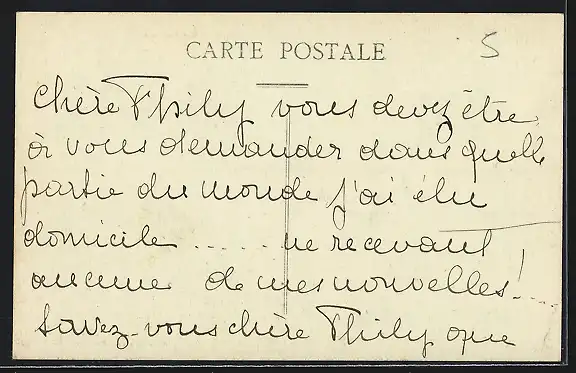 CARTE POSTALE
5
Chère Thily vous devez être
à vous demander dans quelle
partie du monde j'ai élu
domicile ..... ne recevant
aucune de mes nouvelles!...
Savez-vous chère Thily que